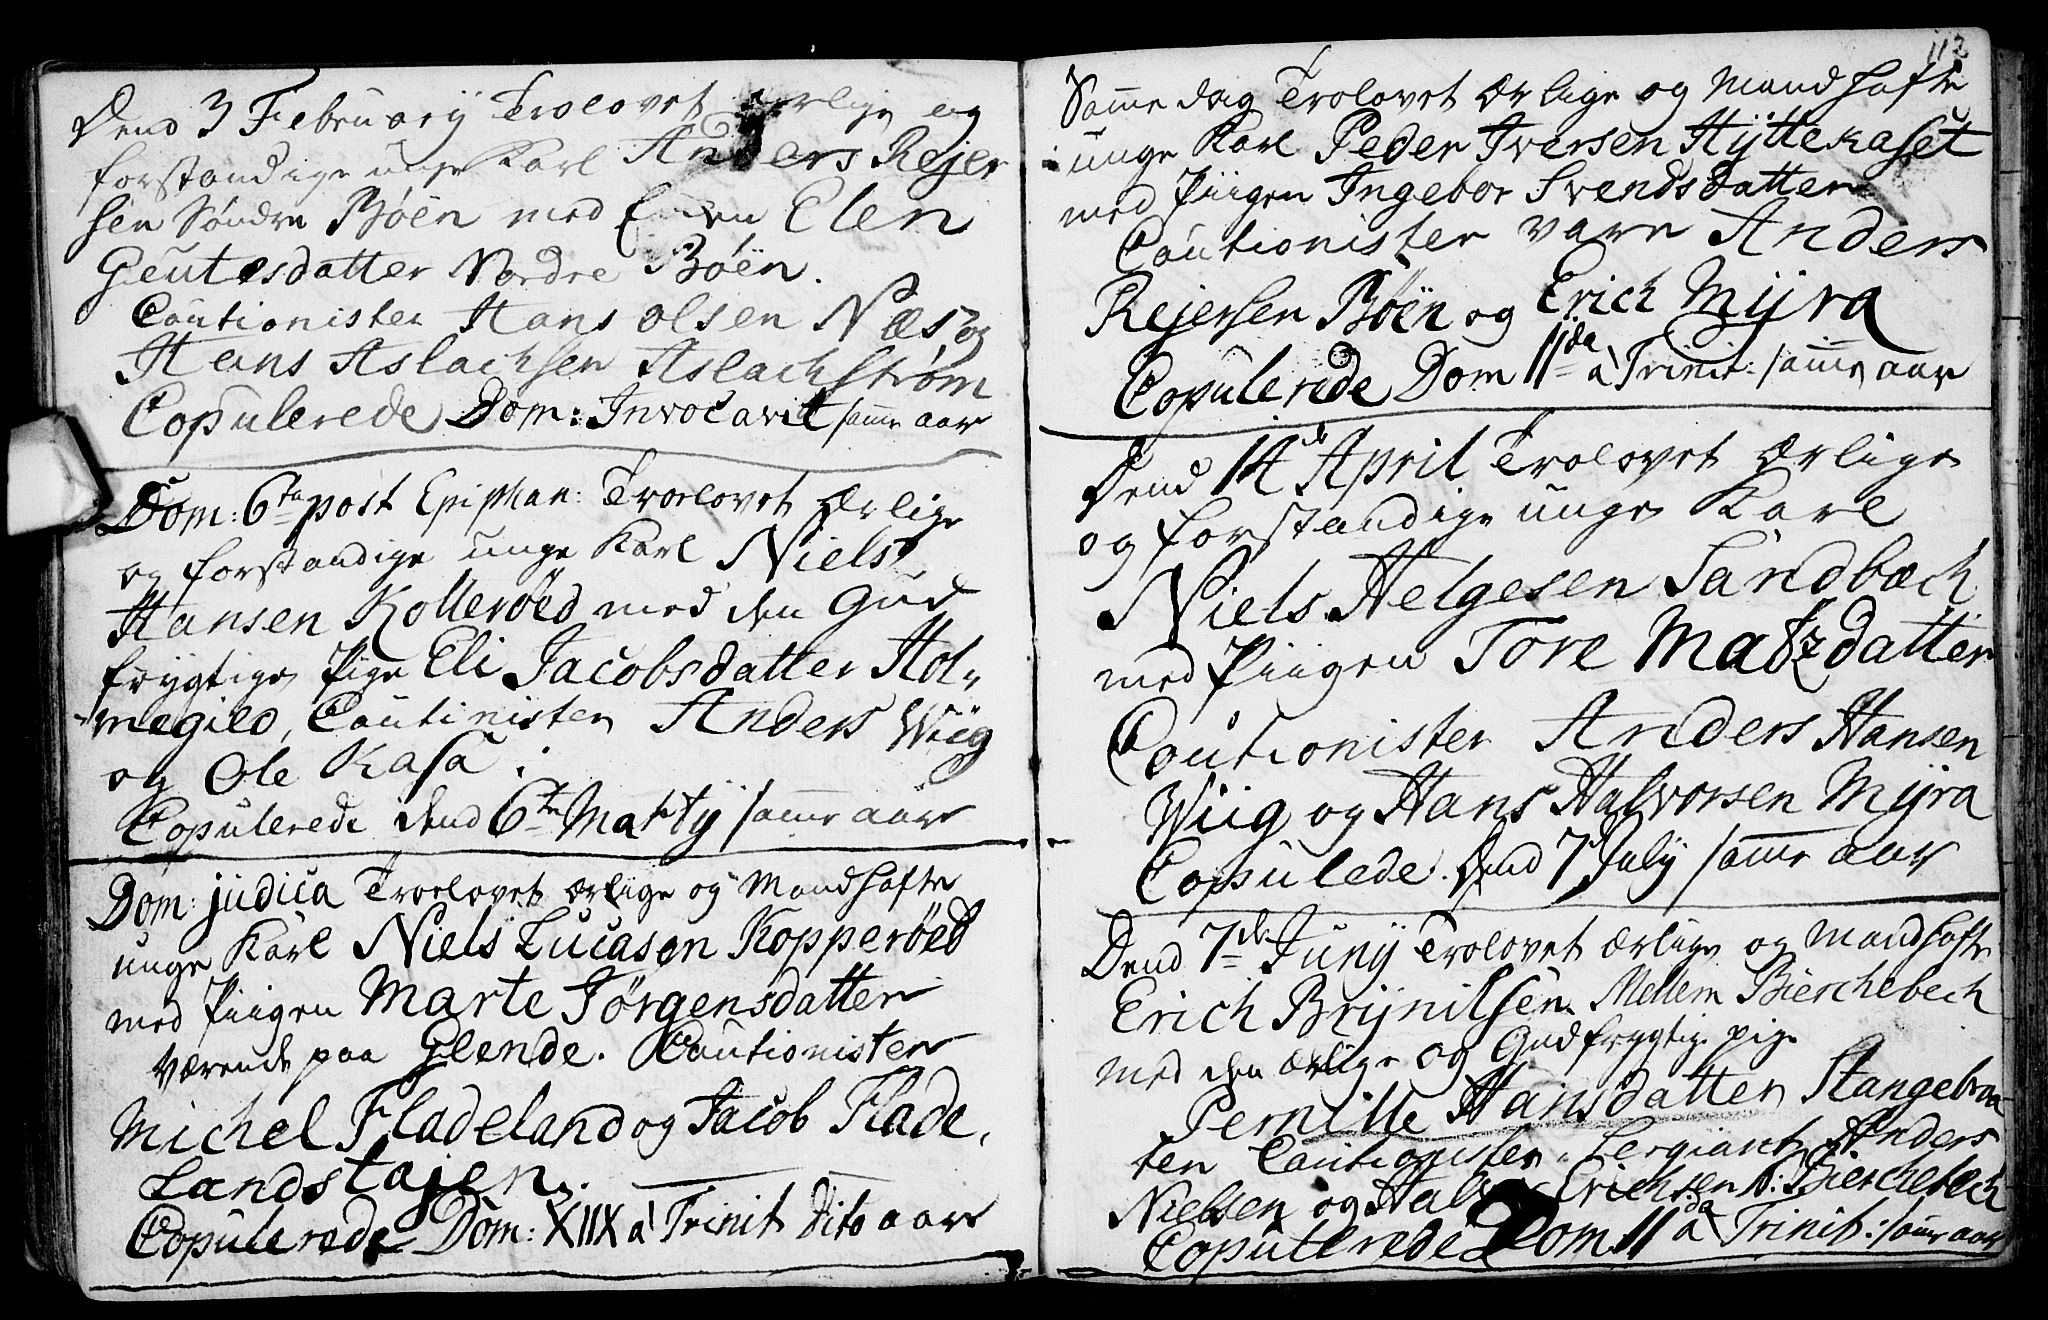 Dend 3 February Trolovet ærlige og
forstandige unge Karl Anders Rejer
sen Söndre Böen med Elen
Geutesdatter Nordre Böen.
Cautionister Hans olsen Næs og
Hans Aslachsen Aslachström
Copulerede Dom: Invocavit samme aar
Dom: 6ta post Epiphan: Troelovet Ærlige
og forstandige unge Karl Niels
Hansen Kolleröed med den Gud
frygtige Pige Eli Jacobsdatter Hol„
megild, Cautinister Anders Wiig
og Ole Kasa.
Copulerede dend 6te Marty samme aar
Dom: judica Troelovet ærlige og Mandhafte
unge Karl Niels Lucasen Kopperöed
med Piigen Marte Jörgensdatter
værende paa Glende. Cautionister
Michel Fladeland og Jacob Flade,
Landstøjen.
Copulerede Dom: XIIX a Trinit dito aar
112
Samme dag Trolovet Ærlige og Mandhafte
unge Karl Peder Iversen Hyttekaset
med Piigen Ingebor Svendsdatter
Cautionister vare Anders
Rejersen Böen og Erich Myra
Copulerede Dom 11da a Trinit: samme aar
Dend 14de April Trolovet Ærlige
og forstandige unge Karl
Niels Helgesen Sandbæch
med Piigen Tore Madzdatter
Cautionister Anders Hansen
Wiig og Hans Halvorsen Myra
Copulede. Dend 7 July samme aar
Dend 7de Juny Trolovet ærlige og Mandhafte
Erich Brynilsen Mellem Bierchebech
med den ærlige og Gudfrygtige pige
Pernille Hansdatter Stangebraa
ten Cautionister Sergiant Anders
Nielsen og Halvor Erichsen N: Bierchebech
Copulerede Dom 11da a Trinit: samme aar